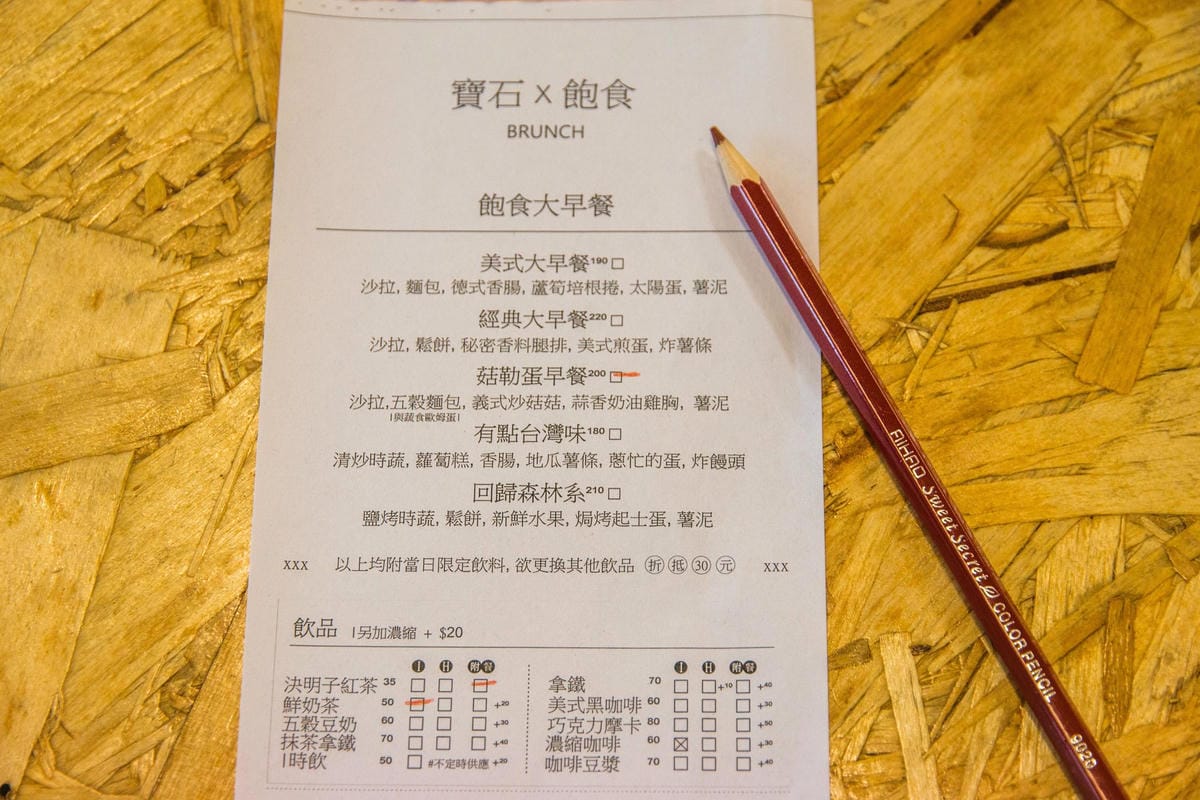 寶石 x 飽食
BRUNCH
飽食大早餐
美式大早餐190 □
沙拉, 麵包, 德式香腸, 蘆筍培根捲, 太陽蛋, 薯泥
經典大早餐220 □
沙拉, 鬆餅, 秘密香料腿排, 美式煎蛋, 炸薯條
菇勒蛋早餐200 □
沙拉,五穀麵包, 義式炒菇菇, 蒜香奶油雞胸, 薯泥
|與蔬食歐姆蛋|
有點台灣味180 □
清炒時蔬, 蘿蔔糕, 香腸, 地瓜薯條, 蔥忙的蛋, 炸饅頭
回歸森林系210 □
鹽烤時蔬, 鬆餅, 新鮮水果, 焗烤起士蛋, 薯泥
xxx 以上均附當日限定飲料, 欲更換其他飲品 折抵30元 xxx
飲品 |另加濃縮 + $20
I H 附餐
決明子紅茶 35 □ □ □
鮮奶茶 50 □ □ □+20
五穀豆奶 60 □ □ □+30
抹茶拿鐵 70 □ □ □+40
|時飲 50 □ #不定時供應 +20
I H 附餐
拿鐵 70 □ □+10 □+40
美式黑咖啡 60 □ □ □+30
巧克力摩卡 80 □ □ □+50
濃縮咖啡 60 ☒ □ □+30
咖啡豆漿 70 □ □ □+40
Sweet Secret COLOR PENCIL 9020